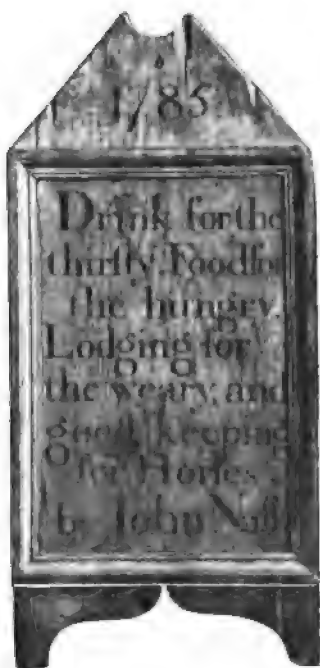 1785
Drink for the
thirſty, Food for
the hungry,
Lodging for
the weary, and
good keeping
for Horſes,
by John Naſh